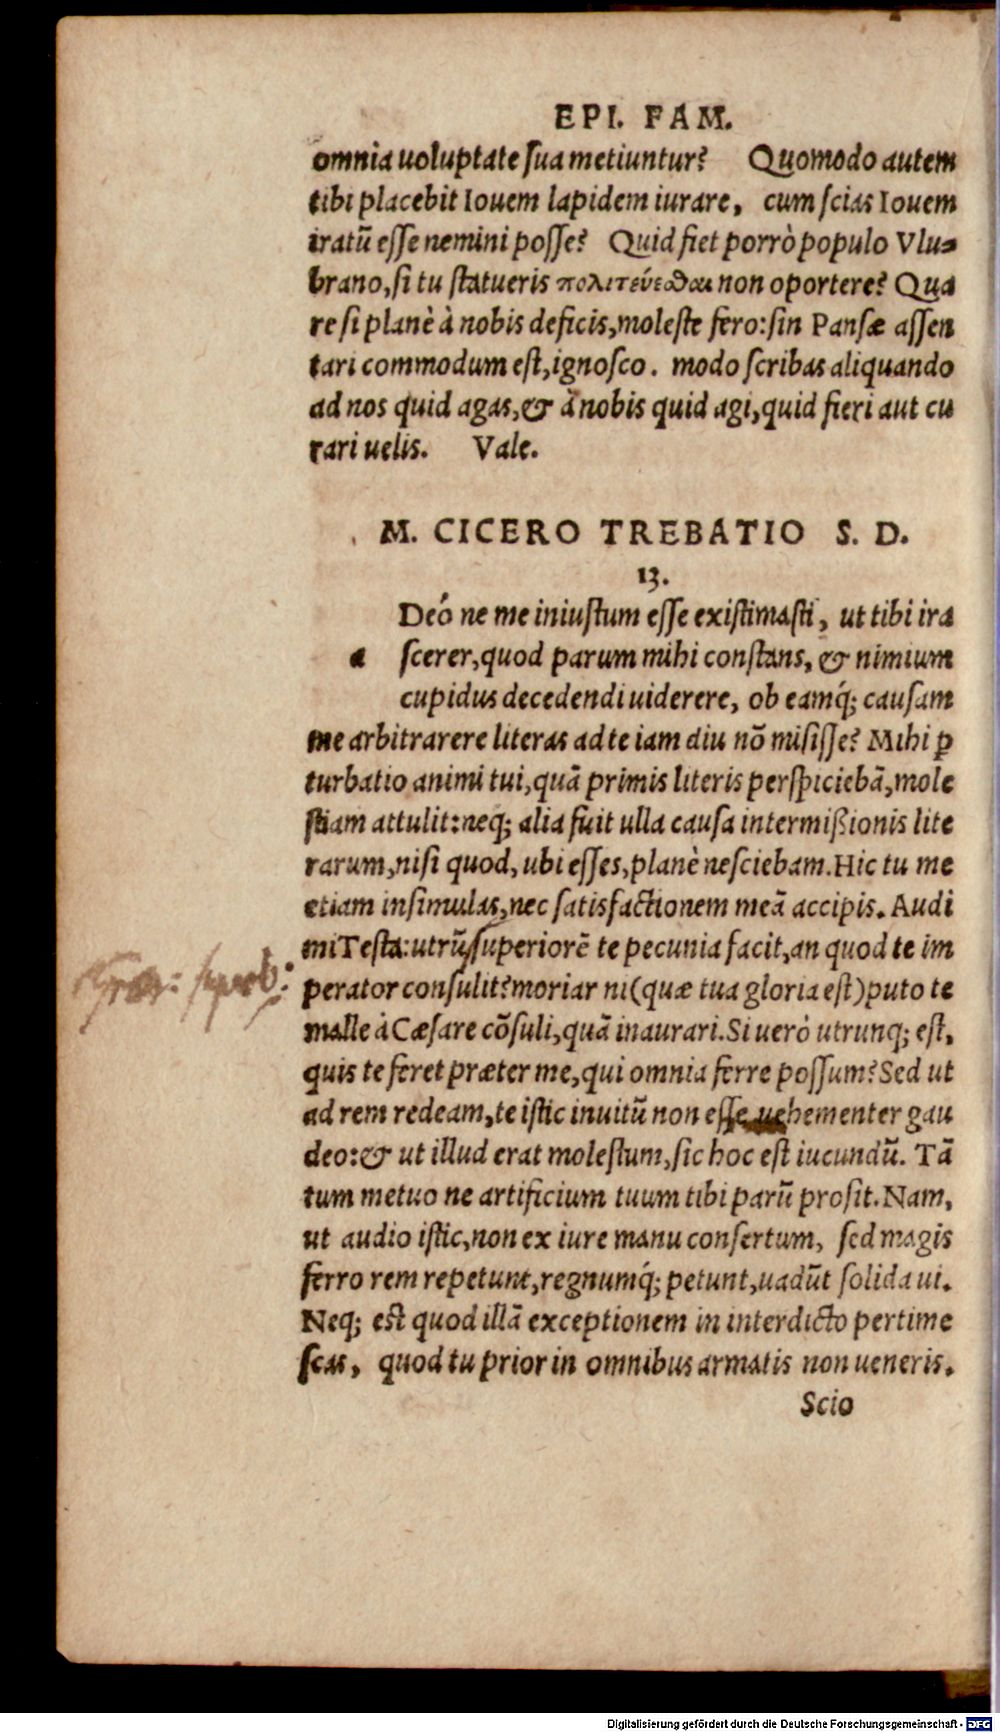 EPI. FAM.
omnia uoluptate sua metiuntur? Quomodo autem
tibi placebit Iouem lapidem iurare, cum scias Iouem
iratū esse nemini posse? Quid fiet porrò populo Vlu-
brano, si tu statueris πολιτεύεσθαι non oportere? Qua
re si planè à nobis deficis, moleste fero: sin Pansæ assen
tari commodum est, ignosco. modo scribas aliquando
ad nos quid agas, & à nobis quid agi, quid fieri aut cu
rari uelis. Vale.
M. CICERO TREBATIO S. D.
13.
Deó ne me iniustum esse existimasti, ut tibi ira
a scerer, quod parum mihi constans, & nimium
cupidus decedendi uiderere, ob eamq́; causam
me arbitrarere literas ad te iam diu nō misisse? Mihi ꝑ
turbatio animi tui, quā primis literis perspiciebā, mole
stiam attulit: neq; alia fuit ulla causa intermißionis lite
rarum, nisi quod, ubi esses, planè nesciebam. Hic tu me
etiam insimulas, nec satisfactionem meā accipis. Audi
mi Testa: utrū superiorē te pecunia facit, an quod te im
perator consulit? moriar ni (quæ tua gloria est) puto te
malle à Cæsare cōsuli, quā inaurari. Si uerò utrunq; est,
quis te feret præter me, qui omnia ferre possum? Sed ut
ad rem redeam, te istic inuitū non esse uehementer gau
deo: & ut illud erat molestum, sic hoc est iucundū. Tā
tum metuo ne artificium tuum tibi parū prosit. Nam,
ut audio istic, non ex iure manu consertum, sed magis
ferro rem repetunt, regnumq́; petunt, uadūt solida ui.
Neq; est quod illā exceptionem in interdicto pertime
scas, quod tu prior in omnibus armatis non ueneris.
Scio
Digitalisierung gefördert durch die Deutsche Forschungsgemeinschaft - DFG